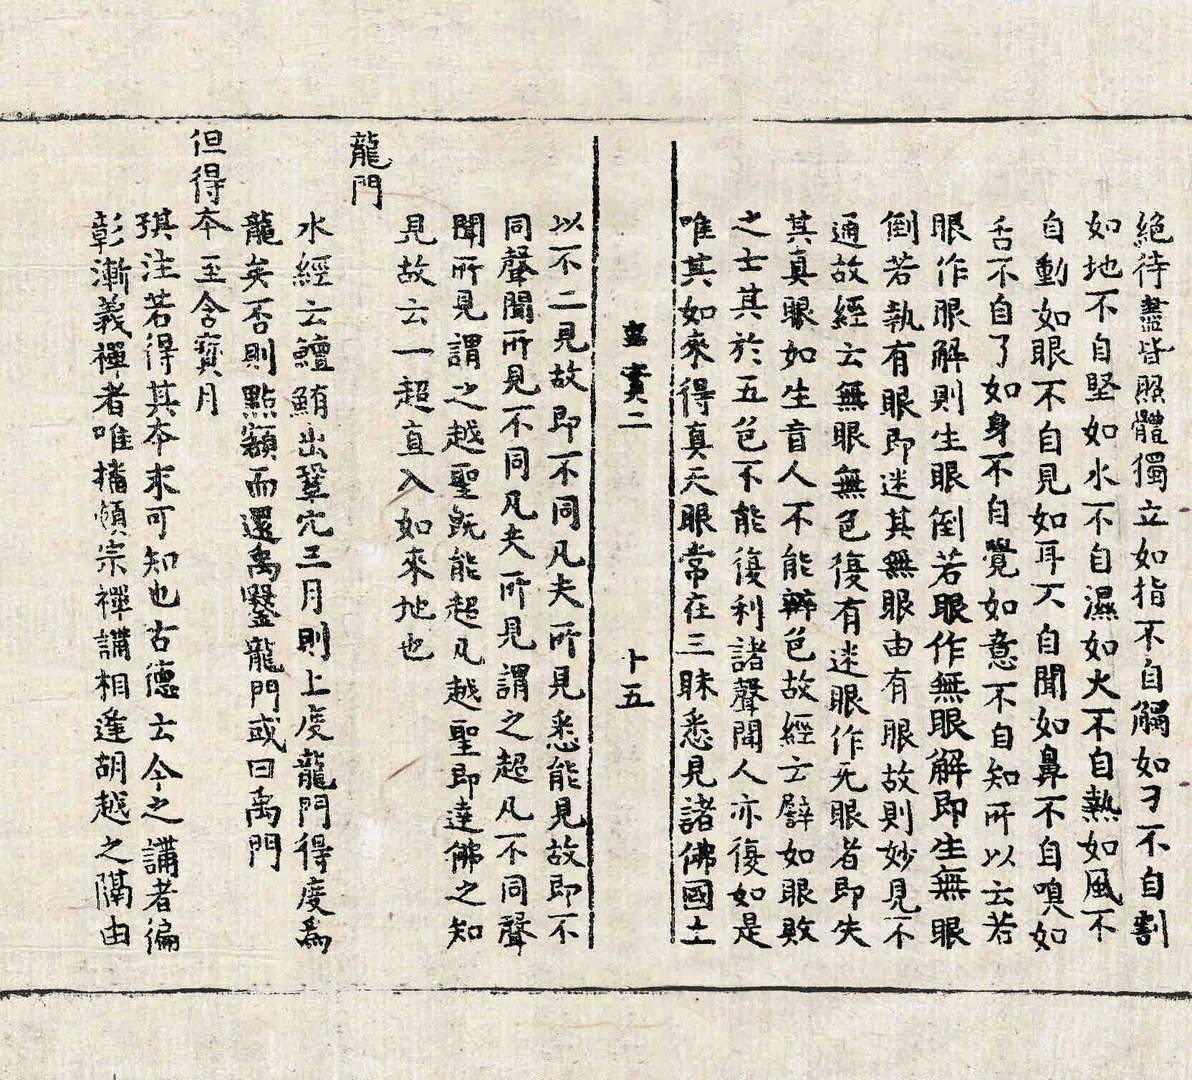 絶待盡皆照體獨立如指不自觸如刀不自割
如地不自堅如水不自濕如火不自熱如風不
自動如眼不自見如耳不自聞如鼻不自嗅如
舌不自了如身不自覺如意不自知所以云若
眼作眼解則生眼倒若眼作無眼解即生無眼
倒若執有眼即迷其無眼由有眼故則妙見不
通故經云無眼無色復有迷眼作无眼者即失
其真眼如生盲人不能辨色故經云譬如眼敗
之士其於五色不能復利諸聲聞人亦復如是
唯其如來得真天眼常在三昧悉見諸佛國土
賣二
十五
以不二見故即不同凡夫所見悉能見故即不
同聲聞所見不同凡夫所見謂之超凡不同聲
聞所見謂之越聖既能超凡越聖即達佛之知
見故云一超直入如來地也
龍門
水經云鱣鮪出鞏穴三月則上度龍門得度為
龍矣否則點額而還禹鑿龍門或曰禹門
但得本至含寶月
琪注若得其本末可知也古德云今之講者徧
彰漸義禪者唯播頓宗禪講相逢胡越之隔由